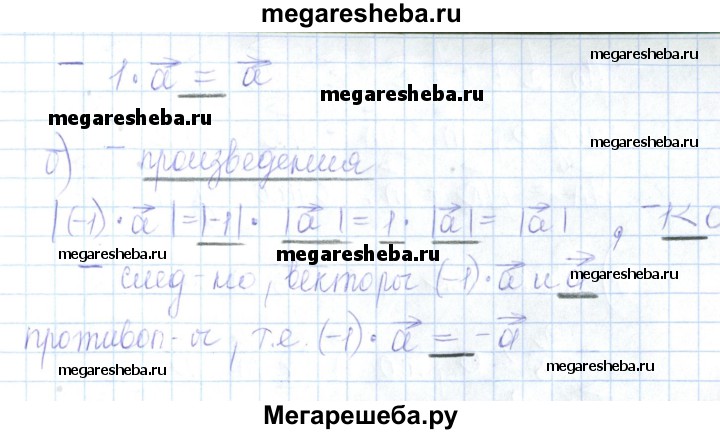 megaresheba.ru
megaresheba.ru
– 1 · a⃗ = a⃗
megaresheba.ru
megaresheba.ru
б) – произведения
megaresheba.ru
|(-1) · a⃗| = |-1| · |a⃗| = 1 · |a⃗| = |a⃗|, -1<0
megaresheba.ru
megaresheba.ru
– след-но, векторы (-1) · a⃗ и a⃗
противоп-ы, т.е. (-1) · a⃗ = -a⃗
megaresheba.ru
megaresheba.ru
Мегарешеба.ру